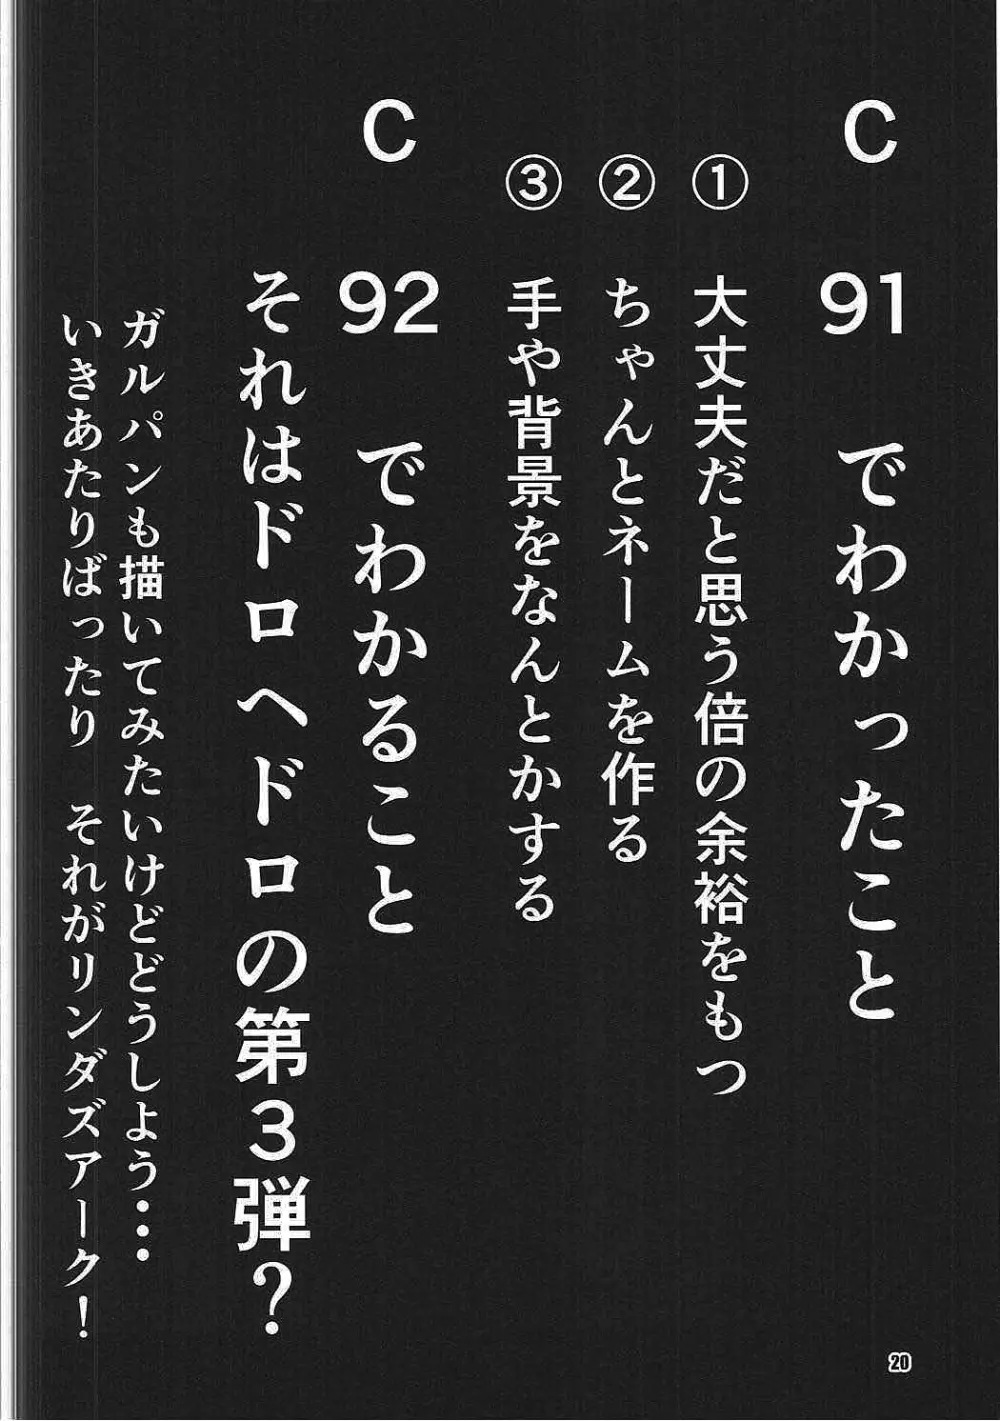 C91でわかったこと
①大丈夫だと思う倍の余裕をもつ
②ちゃんとネームを作る
③手や背景をなんとかする
C92でわかること
それはドロヘドロの第3弾?
ガルパンも描いてみたいけどどうしよう…
いきあたりばったり それがリンダズアーク!
20